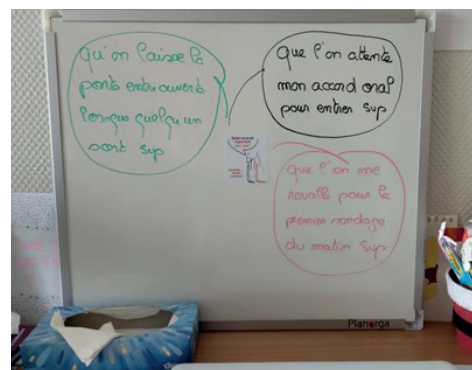 qu'on laisse la
porte entrouverte
lorsque quelqu'un
sort svp
que l'on attente
mon accord oral
pour entrer svp
que l'on me
reveille pour le
premier sondage
du matin svp
Planorga